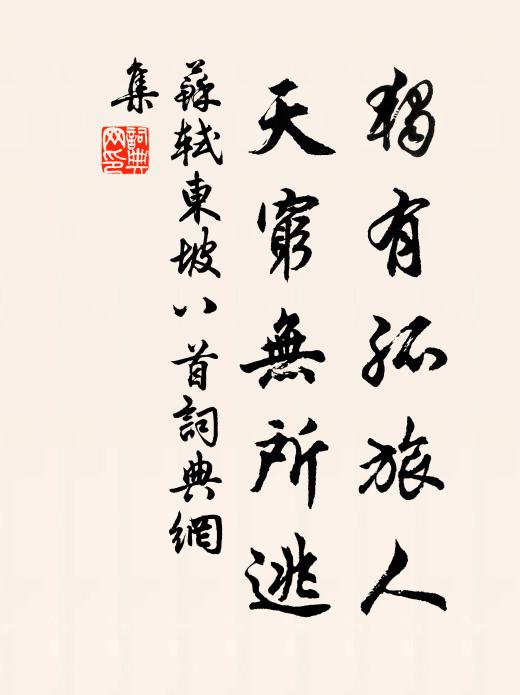 獨有孤旅人
天窮無所逃
蘇軾東坡八首詞典網
集
詞典網印